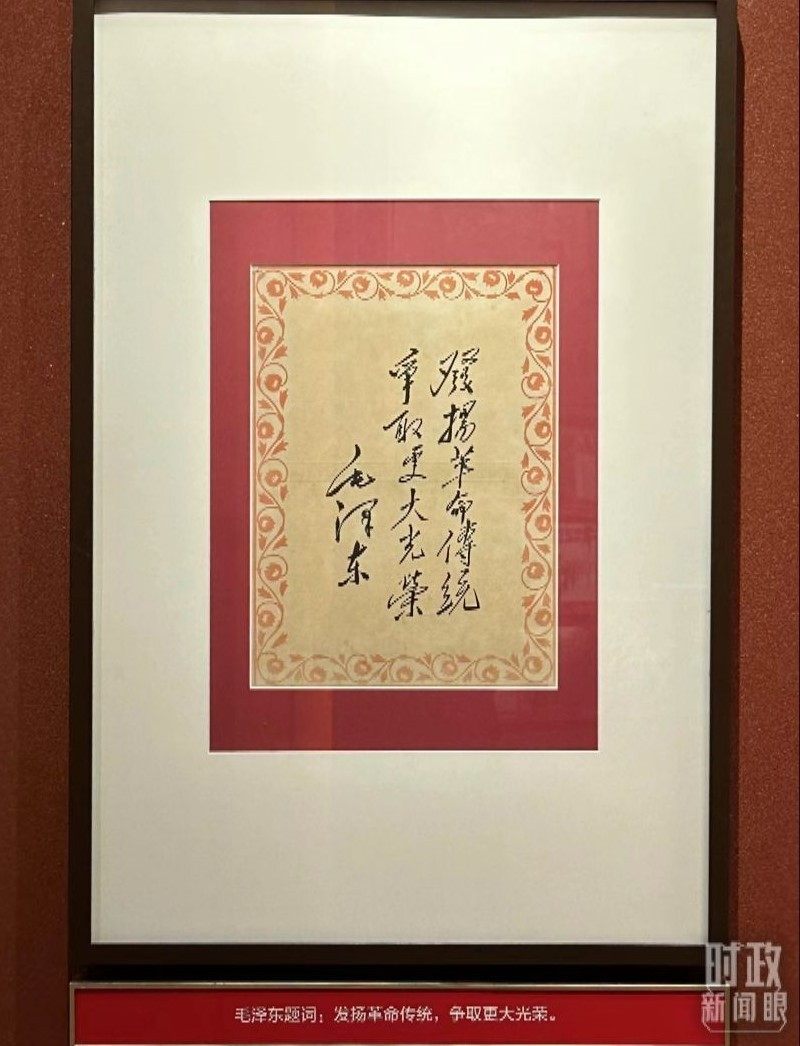 發揚革命傳統
爭取更大光榮
毛澤东
毛泽东题词：发扬革命传统，争取更大光荣。
时政
新闻眼